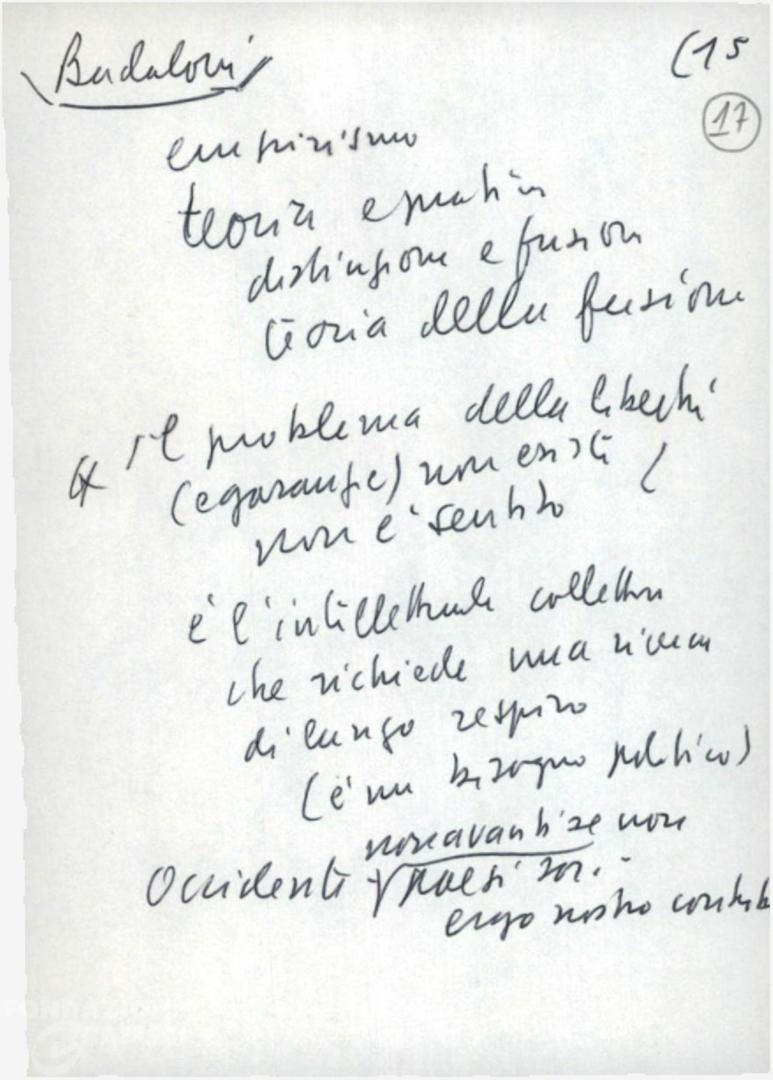 Badaloni (15
17
empirismo
teoria e pratica
distinzione e fusione
teoria della fusione
il problema della libertà
(e garanzie) non esiste
non è sentito
è l'intellettuale collettivo
che richiede una ricerca
di lungo respiro
(è un bisogno politico)
non avanti se non
Occidente paesi soc.
ergo nostro contrib